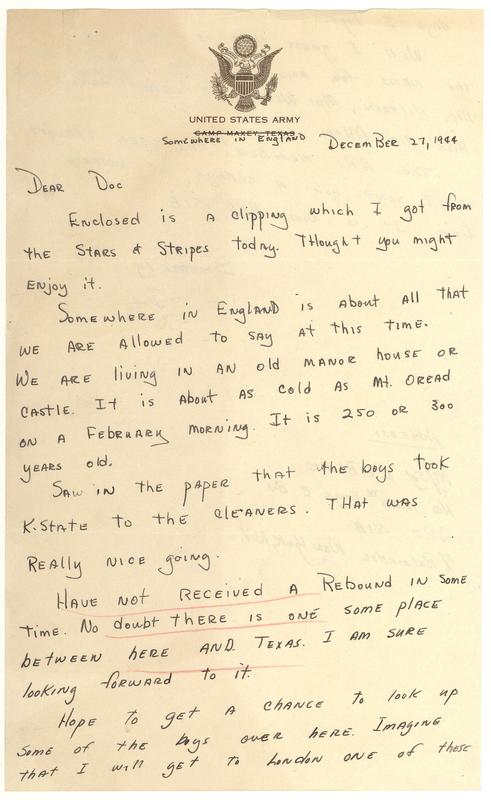 UNITED STATES ARMY
CAMP MAXEY, TEXAS
Somewhere in England December 27, 1944
Dear Doc
Enclosed is a clipping which I got from
the Stars & Stripes today. Thought you might
Enjoy it.
Somewhere in England is about all that
we are allowed to say at this time.
We are living in an old manor house or
castle. It is about as cold as Mt. Oread
on a February morning. It is 250 or 300
years old.
Saw in the paper that the boys took
K-State to the cleaners. That was
Really nice going.
Have not received a Rebound in some
time. No doubt there is one some place
between here and Texas. I am sure
looking forward to it.
Hope to get a chance to look up
some of the boys over here. Imagine
that I will get to London one of these